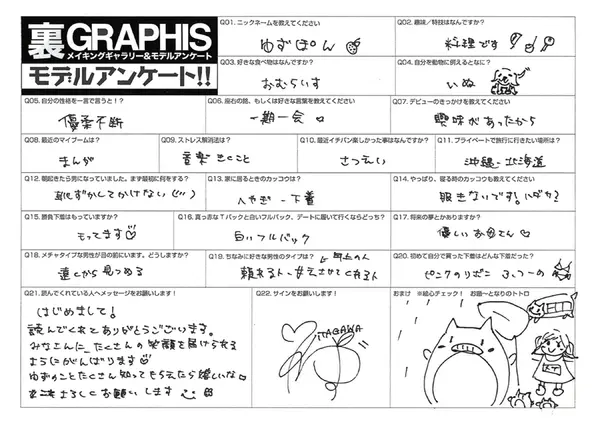 裏GRAPHIS
メイキングギャラリー&モデルアンケート
モデルアンケート!!
Q01. ニックネームを教えてください
ゆずぽん
Q02. 趣味/特技はなんですか?
料理です
Q03. 好きな食べ物はなんですか?
おむらいす
Q04. 自分を動物に例えるとなに?
いぬ
Q05. 自分の性格を一言で言うと!?
優柔不断
Q06. 座右の銘、もしくは好きな言葉を教えてください
一期一会
Q07. デビューのきっかけを教えてください
興味があったから
Q08. 最近のマイブームは?
まんが
Q09. ストレス解消法は?
音楽きくこと
Q10. 最近イチバン楽しかった事はなんですか?
さつえい
Q11. プライベートで旅行に行きたい場所は?
沖縄・北海道
Q12. 朝起きたら男になっていました。まず最初に何をする?
恥ずかしてかけない
Q13. 家に居るときのカッコウは?
へやぎ・下着
Q14. やっぱり、寝る時のカッコウも教えてください
服きないです!ハダカ?
Q15. 勝負下着はもっていますか?
もってます♡
Q16. 真っ赤なTバックと白いフルバック、デートに履いて行くならどっち?
白いフルバック
Q17. 将来の夢とかありますか?
優しいお母さん♡
Q18. メチャタイプな男性が目の前にいます。どうしますか?
遠くから見つめる
Q19. ちなみに好きな男性のタイプは?
年上の人
頼れる人、甘えさせてくれる人
Q20. 初めて自分で買った下着はどんな下着だった?
ピンクのリボン ふつーの
Q21. 読んでくれている人へメッセージをお願いします!
はじめまして!
読んでくれてありがとうございます。
みなさんに、たくさんの笑顔を届けられる
ようにがんばります♡
ゆずのことたくさん知ってもらえたら嬉しいな
よろしくお願いします
Q22. サインをお願いします!
おまけ ※絵心チェック! お題~となりのトトロ